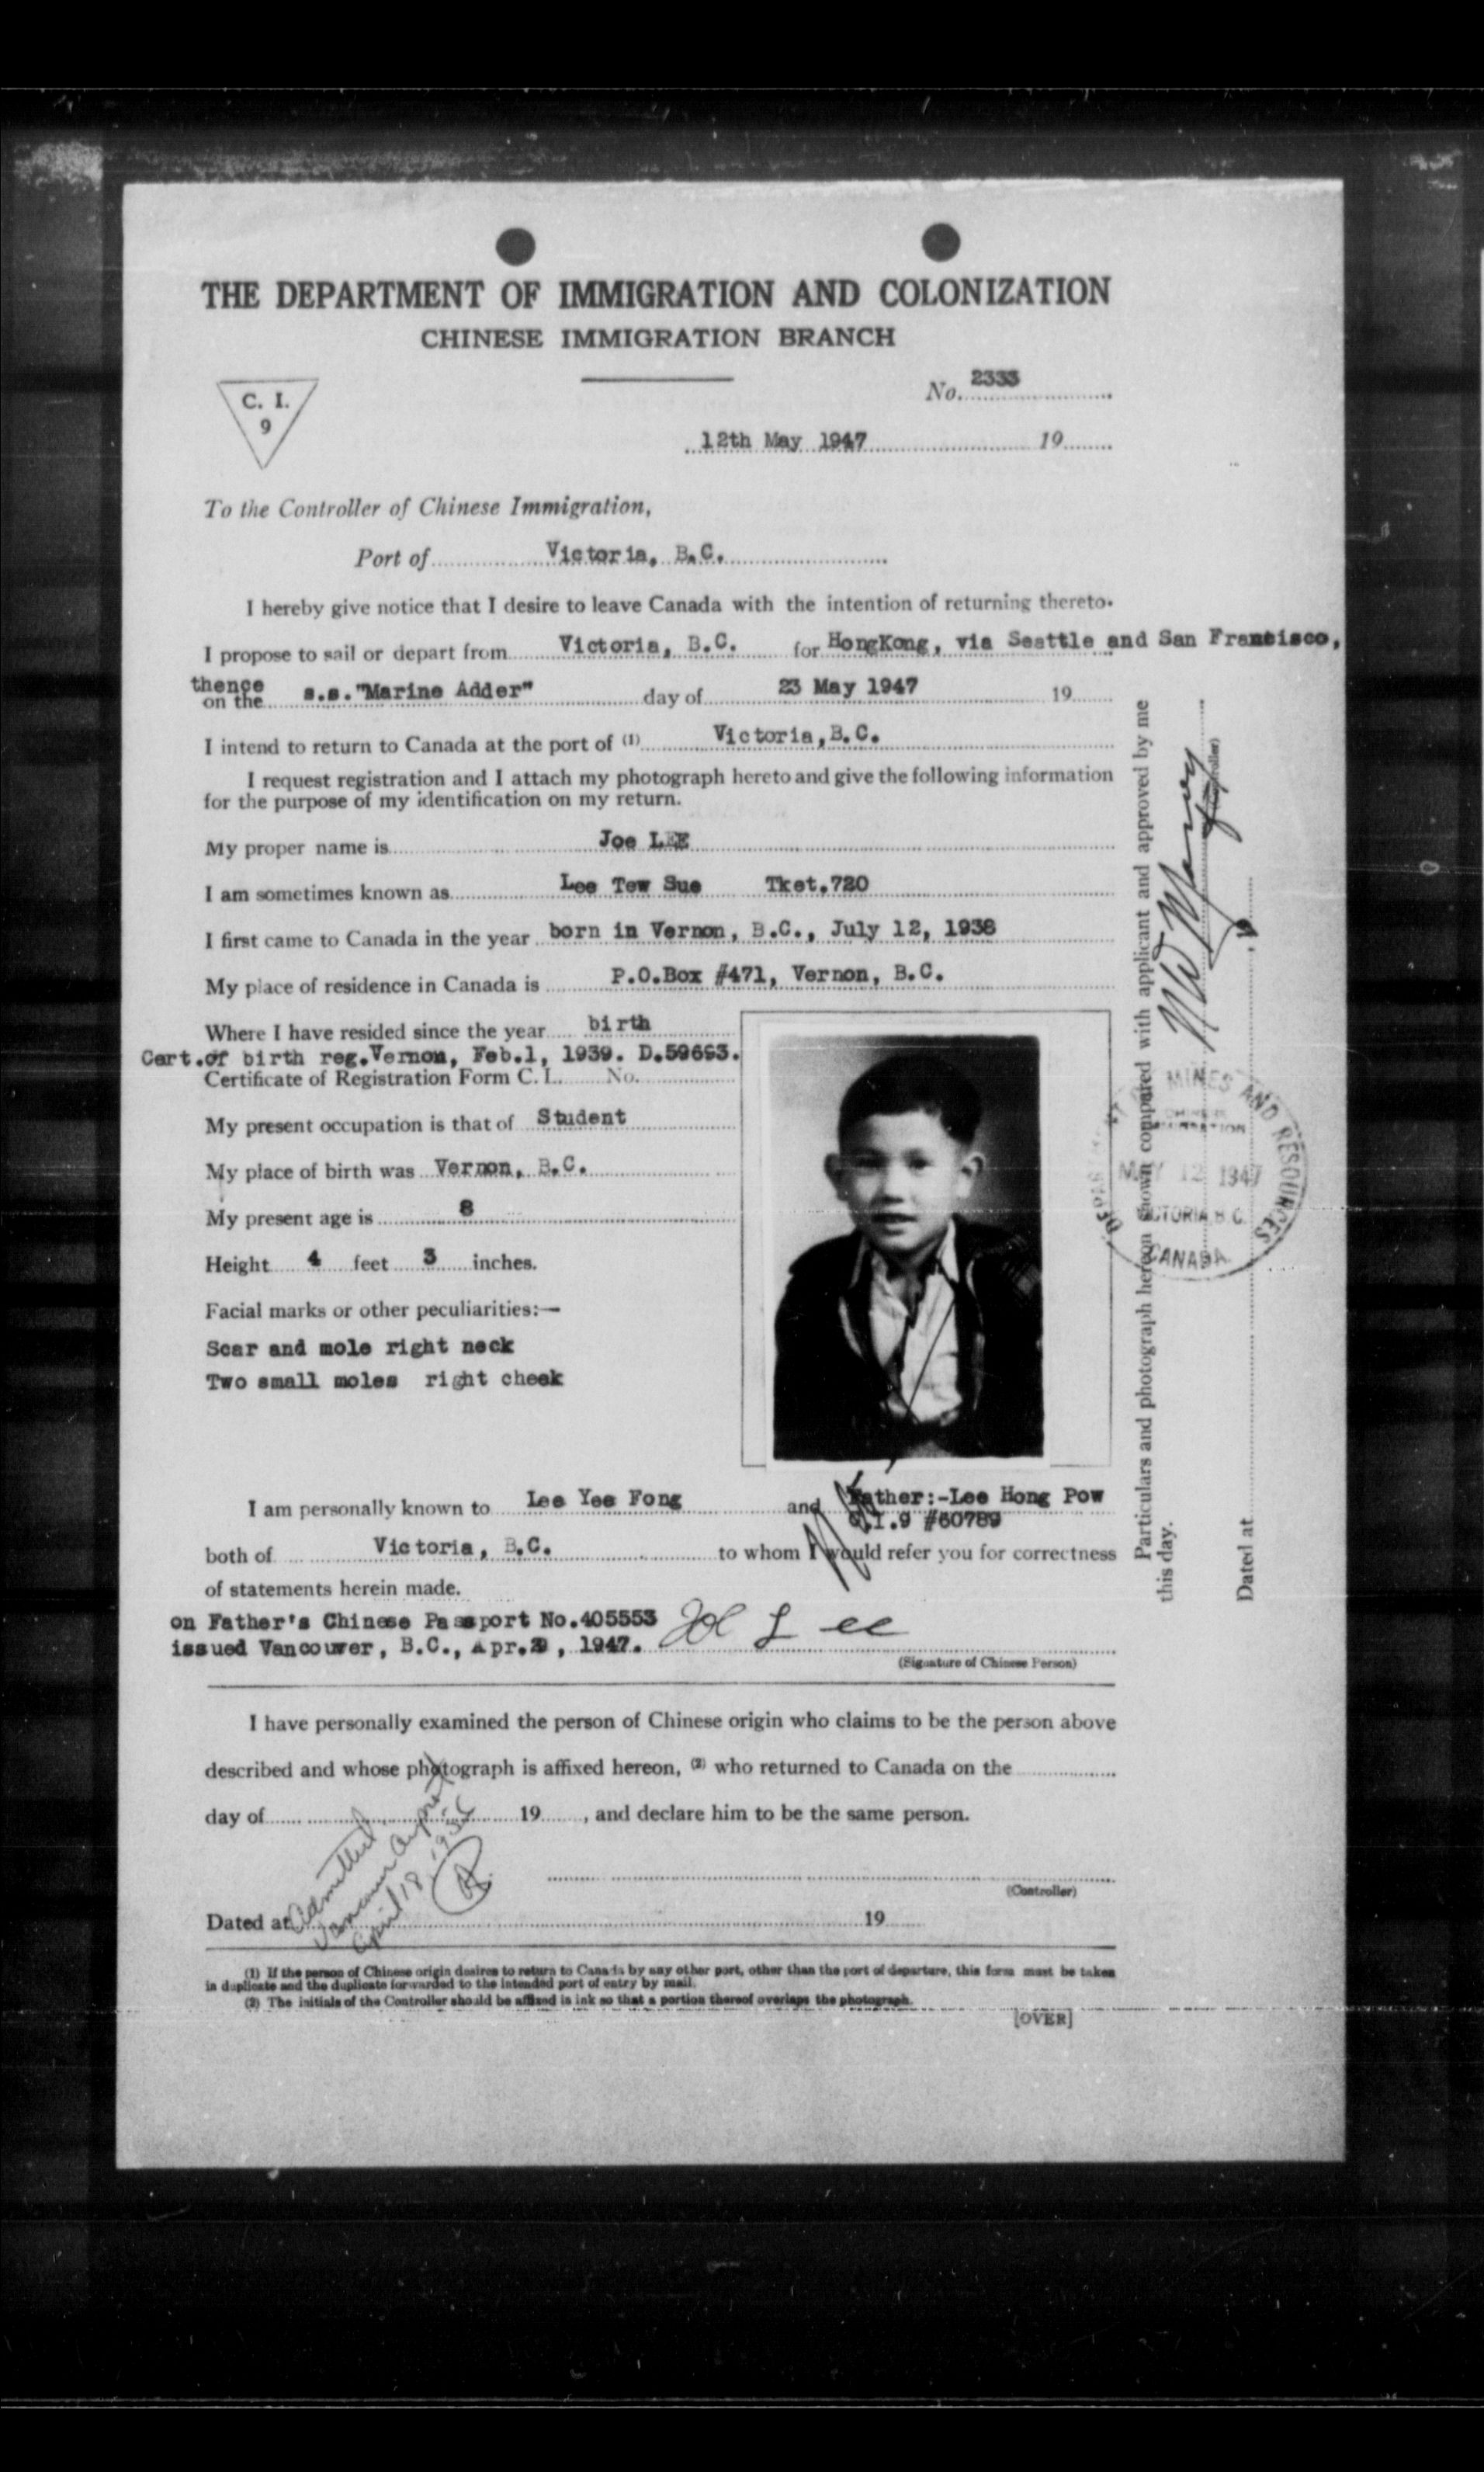 THE DEPARTMENT OF IMMIGRATION AND COLONIZATION
CHINESE IMMIGRATION BRANCH
C. I.
9
No. 2333
12th May 1947 19
To the Controller of Chinese Immigration,
Port of Victoria, B.C.
I hereby give notice that I desire to leave Canada with the intention of returning thereto.
I propose to sail or depart from Victoria, B.C. for HongKong, via Seattle and San Francisco,
thence
on the s.s."Marine Adder" day of 23 May 1947 19
I intend to return to Canada at the port of (1) Victoria,B.C.
I request registration and I attach my photograph hereto and give the following information
for the purpose of my identification on my return.
My proper name is Joe LEE
I am sometimes known as Lee Tew Sue Tket.720
I first came to Canada in the year born in Vernon, B.C., July 12, 1938
My place of residence in Canada is P.O.Box #471, Vernon, B.C.
Where I have resided since the year birth
Cert.of birth reg.Vernon, Feb.1, 1939. D.59693.
Certificate of Registration Form C. I. No.
My present occupation is that of Student
My place of birth was Vernon, B.C.
My present age is 8
Height 4 feet 3 inches.
Facial marks or other peculiarities:—
Scar and mole right neck
Two small moles right cheek
I am personally known to Lee Yee Fong and Father:-Lee Hong Pow
C.I.9 #60789
both of Victoria, B.C. to whom I would refer you for correctness
of statements herein made.
on Father's Chinese Passport No.405553
issued Vancouver, B.C., Apr.29, 1947. Joe Lee
(Signature of Chinese Person)
I have personally examined the person of Chinese origin who claims to be the person above
described and whose photograph is affixed hereon, (2) who returned to Canada on the
day of 19 , and declare him to be the same person.
(Controller)
Dated at 19
Admitted
Vancouver Airport
April 18, 1956
(1) If the person of Chinese origin desires to return to Canada by any other port, other than the port of departure, this form must be taken
in duplicate and the duplicate forwarded to the intended port of entry by mail.
(2) The initials of the Controller should be affixed in ink so that a portion thereof overlaps the photograph.
[OVER]
Particulars and photograph hereon shown compared with applicant and approved by me
this day.
(Controller)
Dated at
MINES AND RESOURCES
MAY 12 1947
VICTORIA B.C.
CANADA